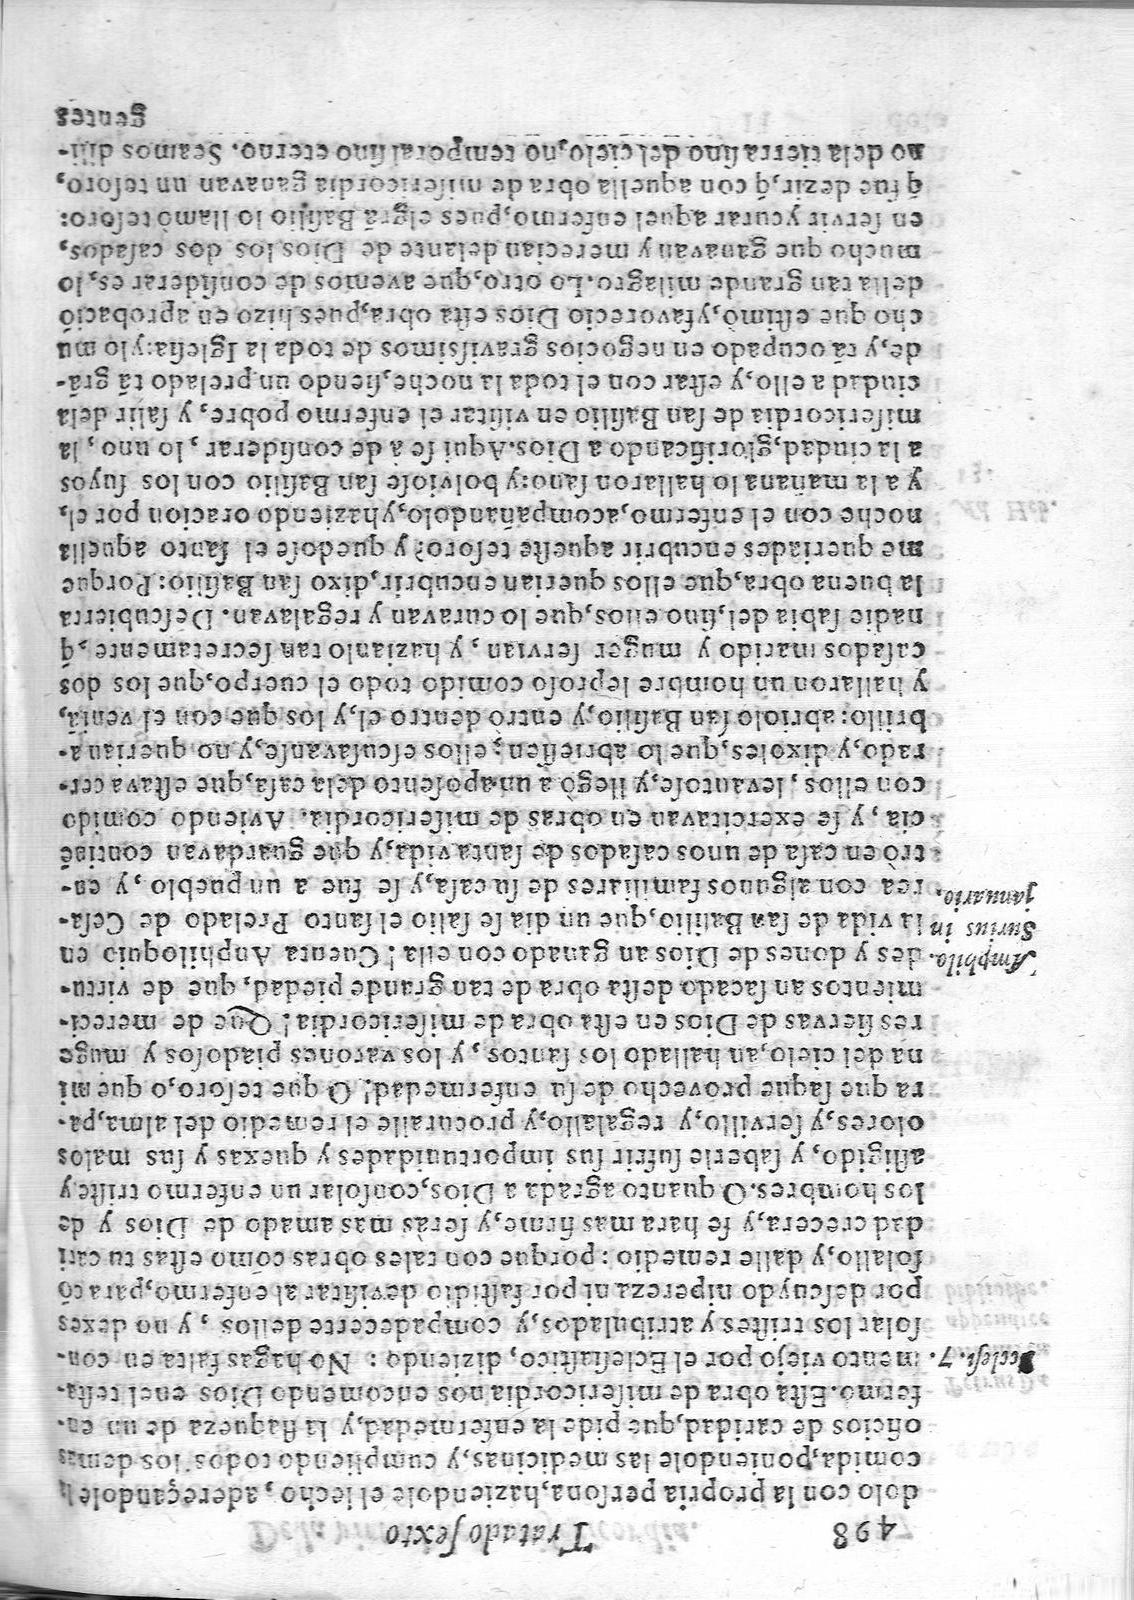 498 Tratado sexto
dolo con la propria persona, haziendole el lecho, adereçandole la
comida, poniendole las medicinas, y cumpliendo todos los demas
oficios de caridad, que pide la enfermedad, y la flaqueza de un en-
fermo. Esta obra de misericordia nos encomendo Dios en el testa-
Ecclesi. 7. mento viejo por el Eclesiastico, diziendo: No hagas falta en con-
solar los tristes y atribulados, y compadecerte dellos, y no dexes
por descuydo ni pereza ni por fastidio de visitar al enfermo, para cō
solallo, y dalle remedio: porque con tales obras como estas tu cari
dad crecera, y se hara mas firme, y seras mas amado de Dios y de
los hombres. O quanto agrada a Dios, consolar un enfermo triste y
afligido, y saberle sufrir sus importunidades y quexas y sus malos
olores, y servillo, y regalallo, y procuralle el remedio del alma, pa-
ra que saque provecho de su enfermedad! O que tesoro, o que mi
na del cielo, an hallado los santos, y los varones piadosos y muge
res siervas de Dios en esta obra de misericordia! Que de mereci-
mientos an sacado desta obra de tan grande piedad, que de virtu-
Amphilo. des y dones de Dios an ganado con ella! Cuenta Anphiloquio en
Surius in la vida de san Basilio, que un dia se salio el santo Prelado de Cesa-
januario. rea con algunos familiares de su casa, y se fue a un pueblo, y en-
trò en casa de unos casados de santa vida, y que guardavan contine
cia, y se exercitavan en obras de misericordia. Aviendo comido
con ellos, levantose, y llegò a un aposento dela casa, que estava cer-
rado, y dixoles, que lo abriessen; ellos escusavanse, y no querian a-
brillo: abriolo san Basilio, y entro dentro el, y los que con el veniā,
y hallaron un hombre leproso comido todo el cuerpo, que los dos
casados marido y muger servian, y hazianlo tan secretamente, q̄
nadie sabia del, sino ellos, que lo curavan y regalavan. Descubierta
la buena obra, que ellos querian encubrir, dixo san Basilio: Porque
me queriades encubrir aqueste tesoro? y quedose el santo aquella
noche con el enfermo, acompañandolo, y haziendo oracion por el,
y a la mañana lo hallaron sano: y bolviose san Basilio con los suyos
a la ciudad, glorificando a Dios. Aqui se à de considerar, lo uno, la
misericordia de san Basilio en visitar el enfermo pobre, y salir dela
ciudad a ello, y estar con el toda la noche, siendo un prelado tā grā-
de, y tā ocupado en negocios gravissimos de toda la Iglesia: y lo mu
cho que estimò, y favorecio Dios esta obra, pues hizo en aprobaciō
della tan grande milagro. Lo otro, que avemos de considerar es, lo
mucho que ganavan y merecian delante de Dios los dos casados,
en servir y curar aquel enfermo, pues el grā Basilio lo llamò tesoro:
q̄ fue dezir, q̄ con aquella obra de misericordia ganavan un tesoro,
no dela tierra sino del cielo, no temporal sino eterno. Seamos dili-
gentes